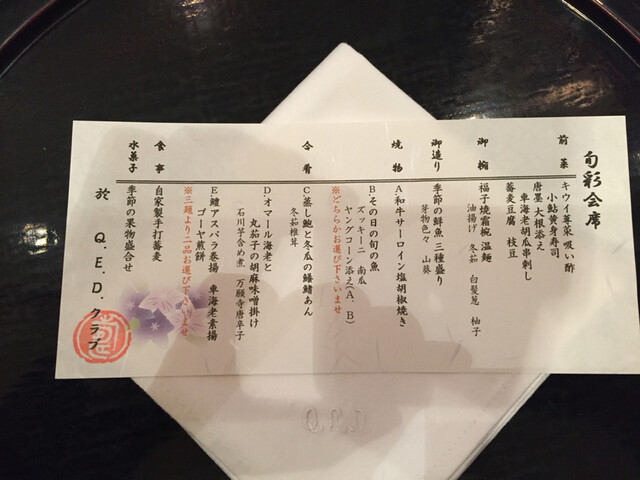 旬彩会席
前菜
キウイ蓴菜 吸い酢
小鮎黄身寿司
唐墨 大根添え
車海老胡瓜串刺し
蕎麦豆腐 枝豆
御椀
福子焼霜椀 温麺
油揚げ 冬茹 白髪葱 柚子
御造り
季節の鮮魚 三種盛り
芽物色々 山葵
焼物
A.和牛サーロイン塩胡椒焼き
B.その日の旬の魚
ズッキーニ 南瓜
ヤングコーン添え(A、B)
※どちらかお選び下さいませ
合肴
C.蒸し鮑と冬瓜の鱶鰭あん
冬茹椎茸
D.オマール海老と
丸茄子の胡麻味噌掛け
石川芋含め煮 万願寺唐辛子
E.鱧アスパラ巻揚 車海老素揚
ゴーヤ煎餅
※三種より二品お選び下さいませ
食事
自家製手打蕎麦
水菓子
季節の果物盛合せ
於 Q.E.D.クラブ
Q.E.D